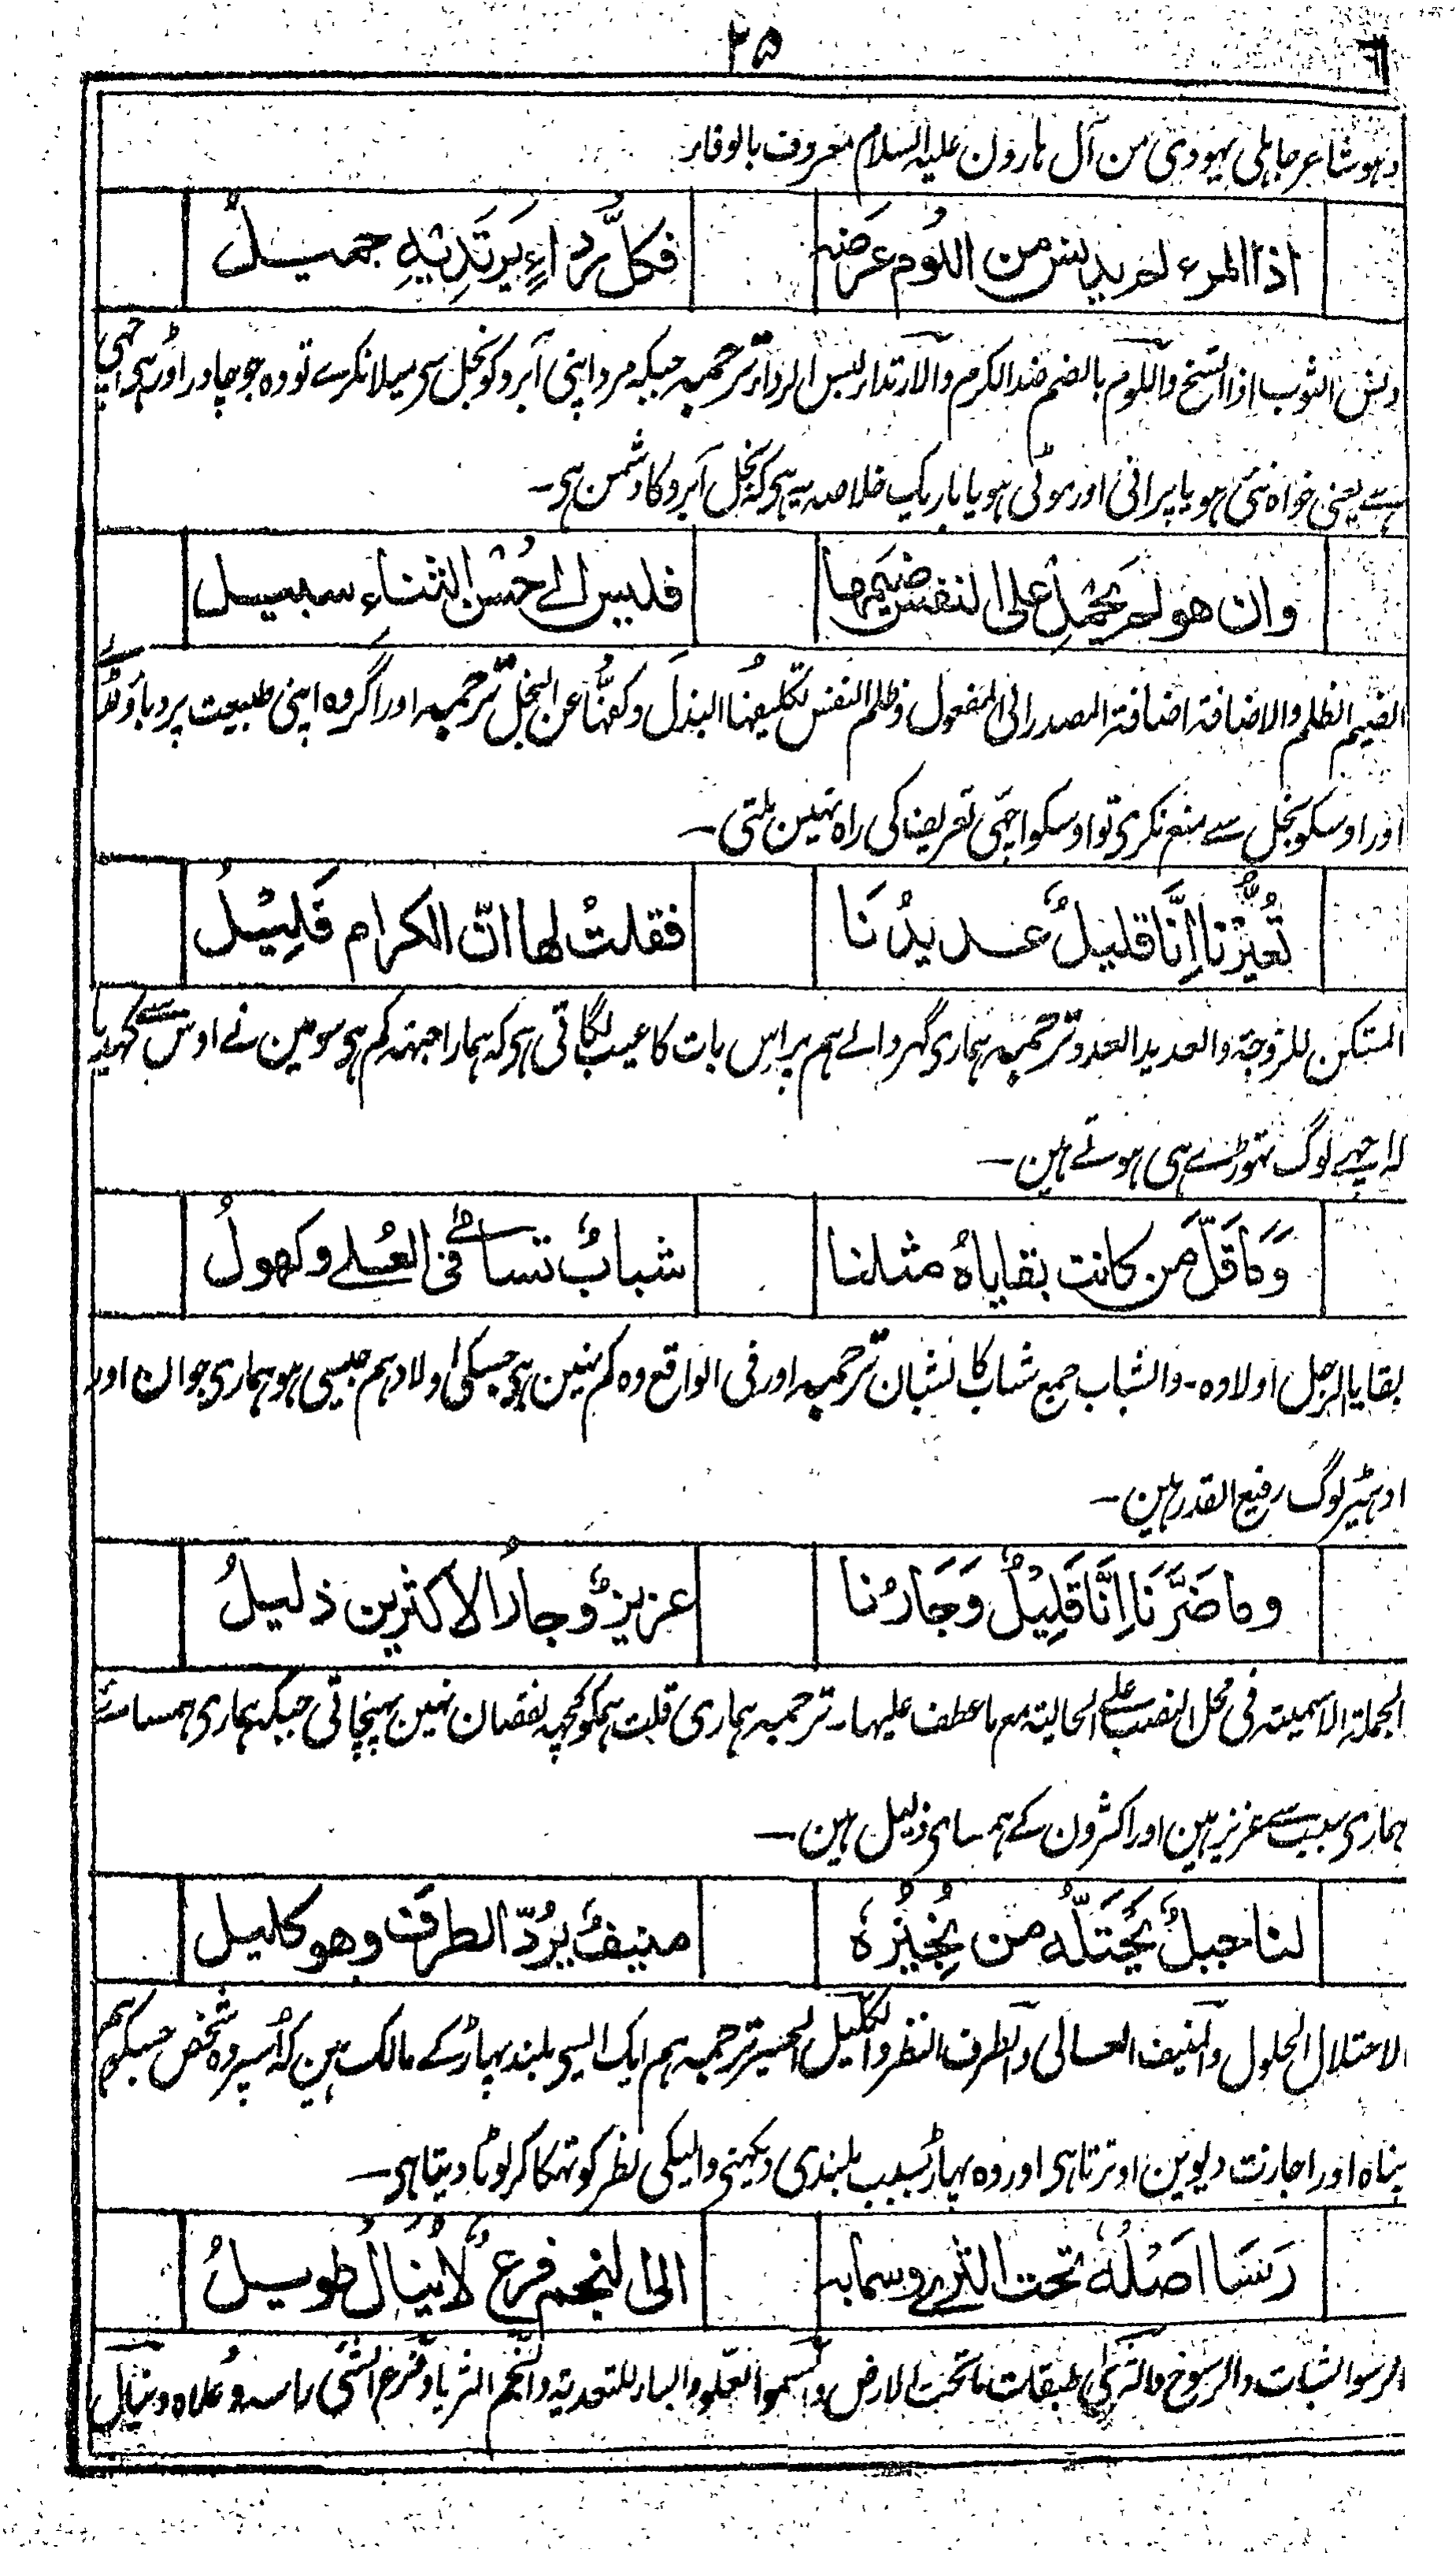 ۲۵
وہو شاعر جاہلی یہودی من آل ہارون علیہ السلام معروف بالوفاء
اذا المرء لم یدنس من اللُوم عرضہ فکلُّ رداءٍ یَرتَدِیْہِ جمیلٌ
دنس الثوب اذا اتسخ واللوم بالضم ضد الکرم والارتداء لبس الرداء ترجمہ جبکہ مرد اپنی آبرو کو بخل سی میلا نکرے تو وہ جو چادر اوڑہی اچہی
ہے یعنی خواہ نئی ہو یا پرانی اور موٹی ہو یا باریک خلاصہ یہ ہی کہ بخل آبرو کا دشمن ہی۔
وان ھو لم یحمل علی النفس ضیمھا فلیس الی حُسن الثناء سبیل
الضیم الظلم والاضافۃ اضافۃ المصدر الی المفعول وظلم النفس تکلیفُہا البذلَ وکفُّہا عن البخل ترجمہ اور اگر وہ اپنی طبیعت پر دباؤ
اور اوسکو بخل سے منع نکری تو اوسکو اچہی تعریف کی راہ نہین ملتی۔
تُعَیِّرُنَا اِنَّا قلیلٌ عدیدُنَا فقلتُ لھا انّ الکرام قَلِیْلُ
المستکن للزوجۃ والعدید العدد ترجمہ ہماری گہر والے ہم پر اس بات کا عیب لگاتی ہی کہ ہمارا جتہہ کم ہی سو مین نے اوس سے کہدیا
کہ اچہے لوگ تہوڑے ہی ہوتے ہین۔
وَمَا قَلَّ مَن کانت بقایاہُ مثلنا شبابٌ تسامٰی فی العُلے وکھولُ
بقایا الرجل اولادہ۔ والشباب جمع شاب کالشبان ترجمہ اور فی الواقع وہ کم نہین ہی جسکی اولاد ہم جیسی ہو ہماری جوان اور
ادہیڑ لوگ رفیع القدر ہین۔
وما ضَرَّنَا اِنَّا قَلِیْلٌ وَجَارُنا عزیزٌ وجارُ الاکثرین ذلیلُ
الجملۃ الاسمیۃ فی محل النصب علے الحالیۃ مع ما عطف علیہا۔ ترجمہ ہماری قلت ہمکو کچہہ نقصان نہین پہنچاتی جبکہ ہماری ہمسائے
ہماری سبب سے عزیز ہین اور اکثرون کے ہمسای ذلیل ہین۔
لنا جبلٌ یحتلّہ من نُجیْرُہٗ منیفٌ یرُدّ الطرفَ وھو کلیل
الاحتلال الحلول والمنیف العالی والطرف النظر والکلیل الحسیر ترجمہ ہم ایک ایسی بلند پہاڑ کے مالک ہین کہ اُسپر وہ شخص جسکو ہم
پناہ اور اجازت دیوین اوترتا ہی اور وہ پہاڑ بسبب بلندی دیکہنی والیکی نظر کو تہکا کر لوٹا دیتا ہی۔
رَسَا اَصْلُہٗ تحت الثرے وسما بہ الی النجم فرعٌ لا یُنَالُ طویلُ
الرسو الثبات والرسوخ والثری طبقات ما تحت الارض والسمو العلو والباء للتعدیۃ والنجم الثریا وفرع الشی راسہ وعلاہ